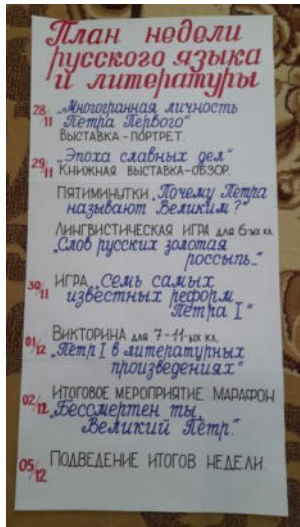 План недели
русского языка
и литературы
28/11 „Многогранная личность
Петра Первого"
ВЫСТАВКА-ПОРТРЕТ.
„Эпоха славных дел"
29/11 КНИЖНАЯ ВЫСТАВКА-ОБЗОР.
ПЯТИМИНУТКИ „Почему Петра
называют Великим?"
ЛИНГВИСТИЧЕСКАЯ ИГРА для 6-ых кл.
„Слов русских золотая
россыпь..."
30/11 ИГРА „Семь самых
известных реформ
Петра I"
01/12 ВИКТОРИНА для 7-11-ых кл.
„Пётр I в литературных
произведениях"
02/12 ИТОГОВОЕ МЕРОПРИЯТИЕ. МАРАФОН
„Бессмертен ты,
Великий Пётр."
05/12 ПОДВЕДЕНИЕ ИТОГОВ НЕДЕЛИ.